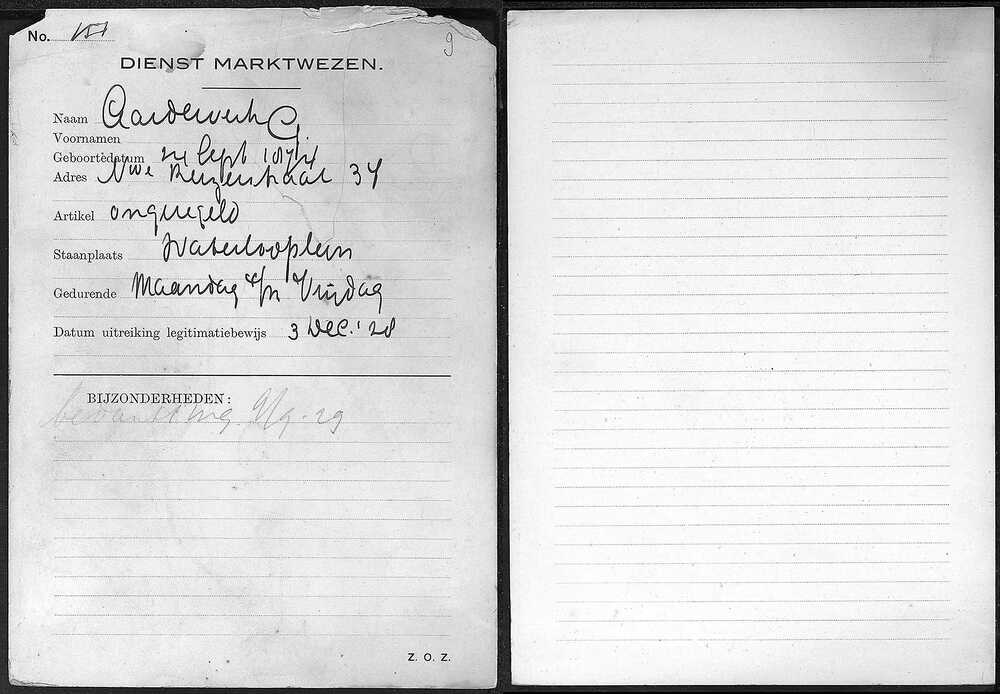 No. 151
9
DIENST MARKTWEZEN.
Naam Aardewerk G.
Voornamen
Geboortedatum 24 Sept 1874
Adres Nwe Keizerstraat 34
Artikel ongeregeld
Staanplaats Waterlooplein
Gedurende Maandag t/m Vrijdag
Datum uitreiking legitimatiebewijs 3 Dec. '28
BIJZONDERHEDEN:
9/9-29
Z. O. Z.